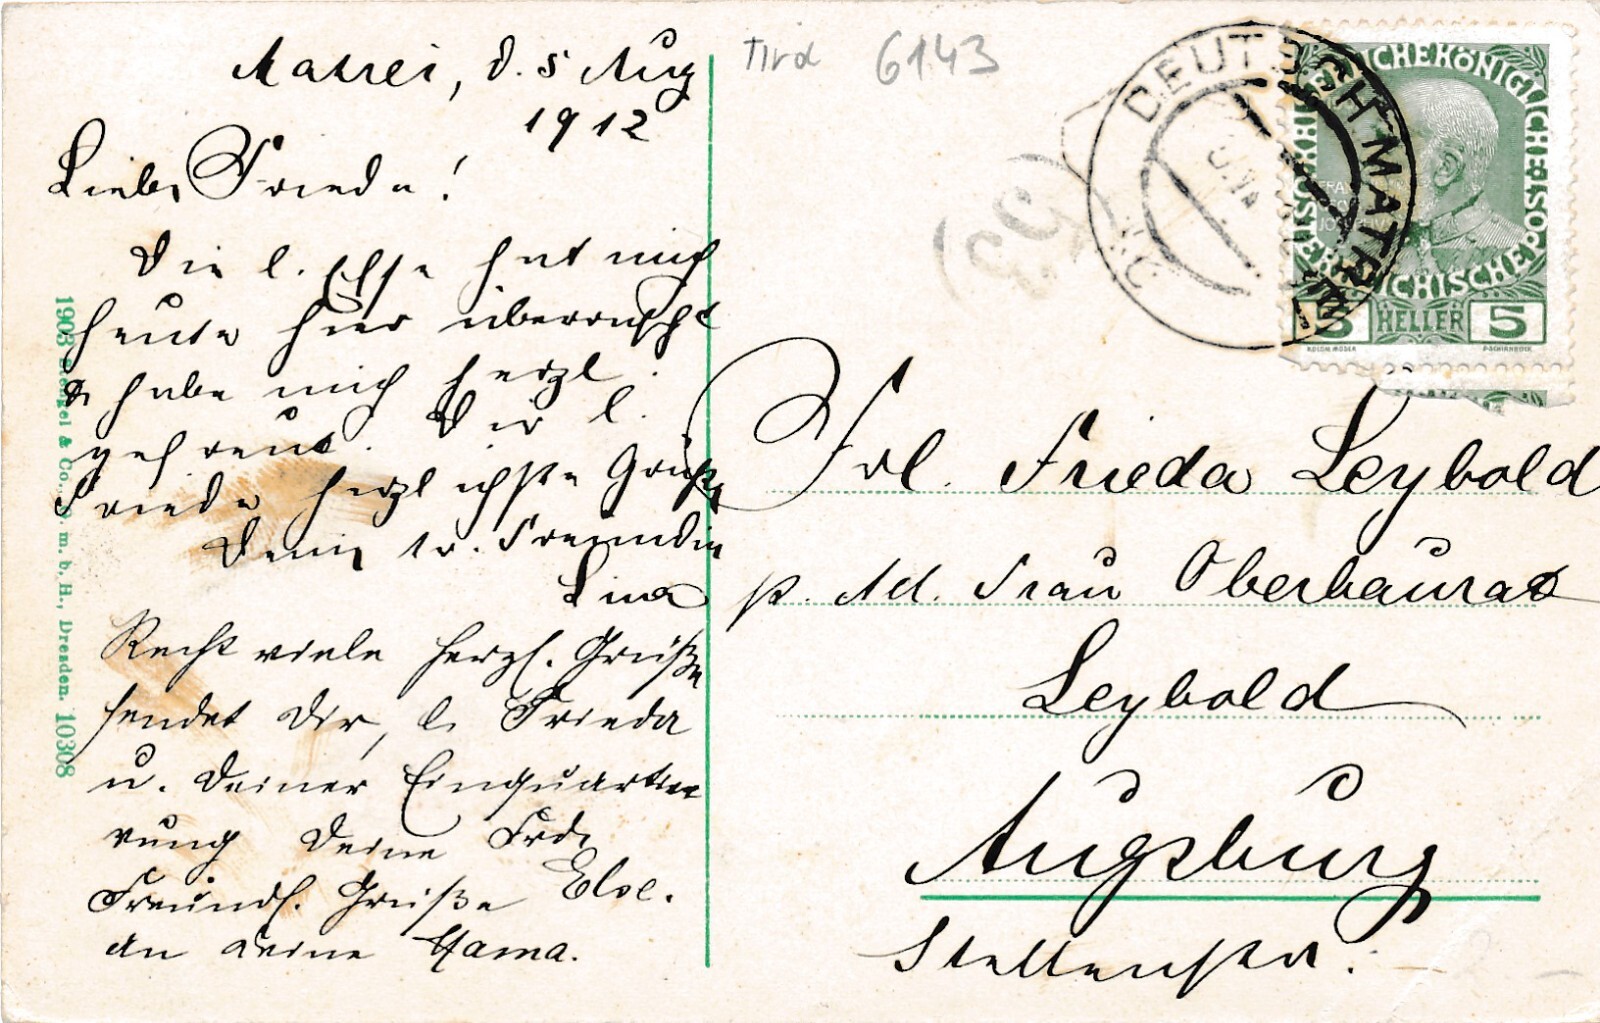 Matrei, d. 5 Aug
1912
Liebe Frieda!
Die l. Else hat mich
heute hier überrascht
& habe mich herzl.
gefreut. Dir l.
Frieda herzlichste Grüße
Deine tr. Freundin
Lina
Recht viele herzl. Grüße
sendet Dir, l. Frieda
u. Deiner Einquartie
rung Deine Frd.
Else.
Freundl. Grüße
an Deine Mama.
1903 Stengel & Co., G. m. b. H., Dresden. 10308
Tirol 6143
DEUTSCH-MATREI
KAISERLICHE KÖNIGLICHE ÖSTERREICHISCHE POST
FRANZ
JOSEF I
5 HELLER 5
KOLOM. MOSER
F. SCHIRNBÖCK
Frl. Frieda Leybold
p. Ad. Frau Oberbaurat
Leybold
Augsburg
Stettenstr.